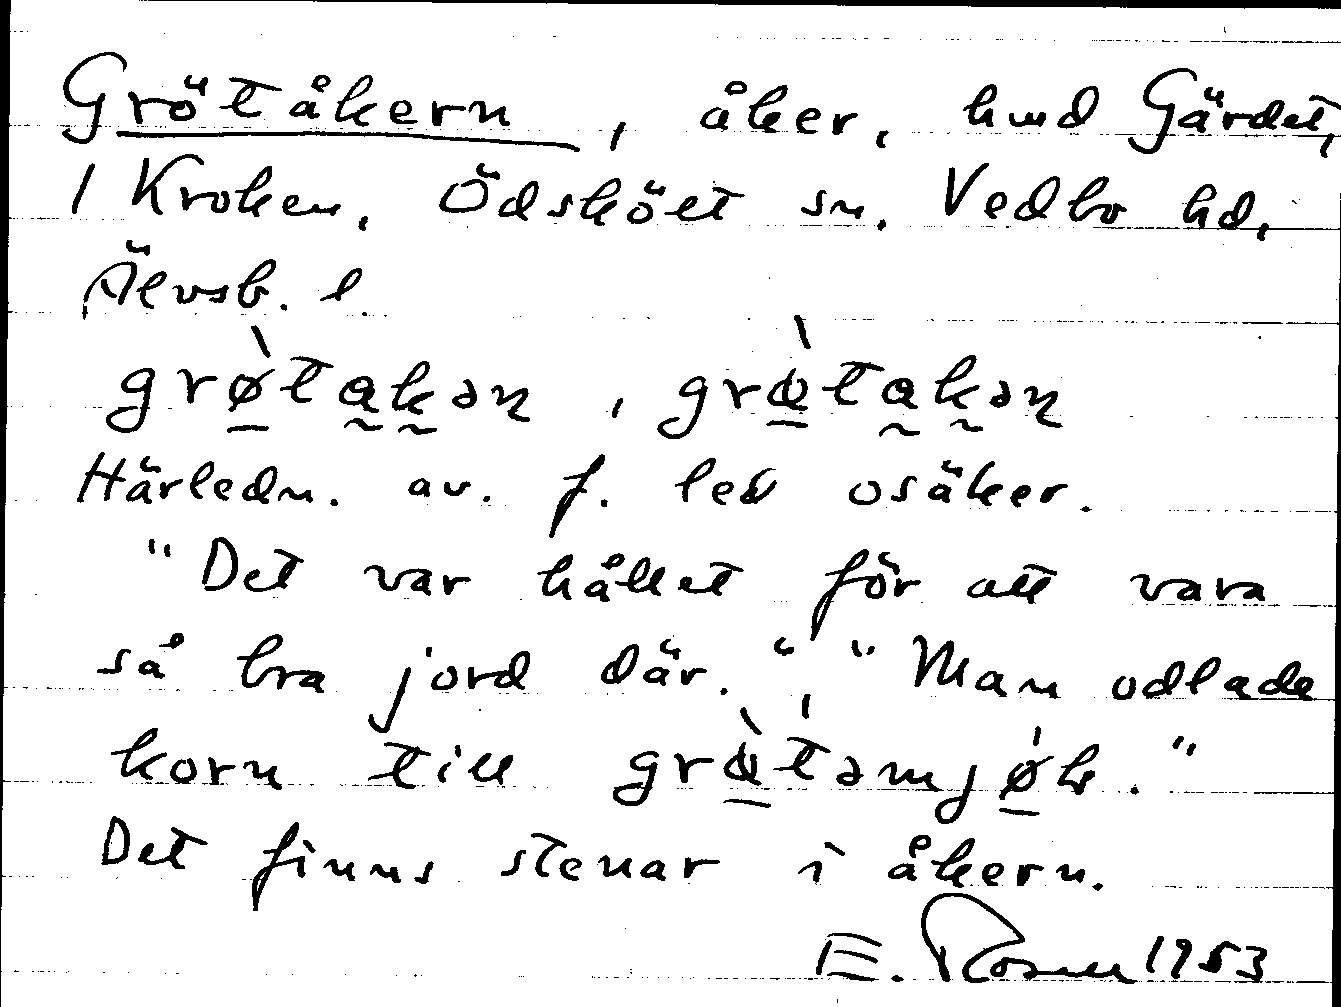 Grötåkern, åker, hmd Gärdet,
1 Kroken, Ödsköet sn. Vedbo hd,
Älvsb. l.
grø̀takən, grɵ̀takən
Härledn. av. f. led osäker.
"Det var hållet för att vara
så bra jord där.", "Man odlade
korn till grɵ̀təmjøl."
Det finns stenar i åkern.
E. 1953